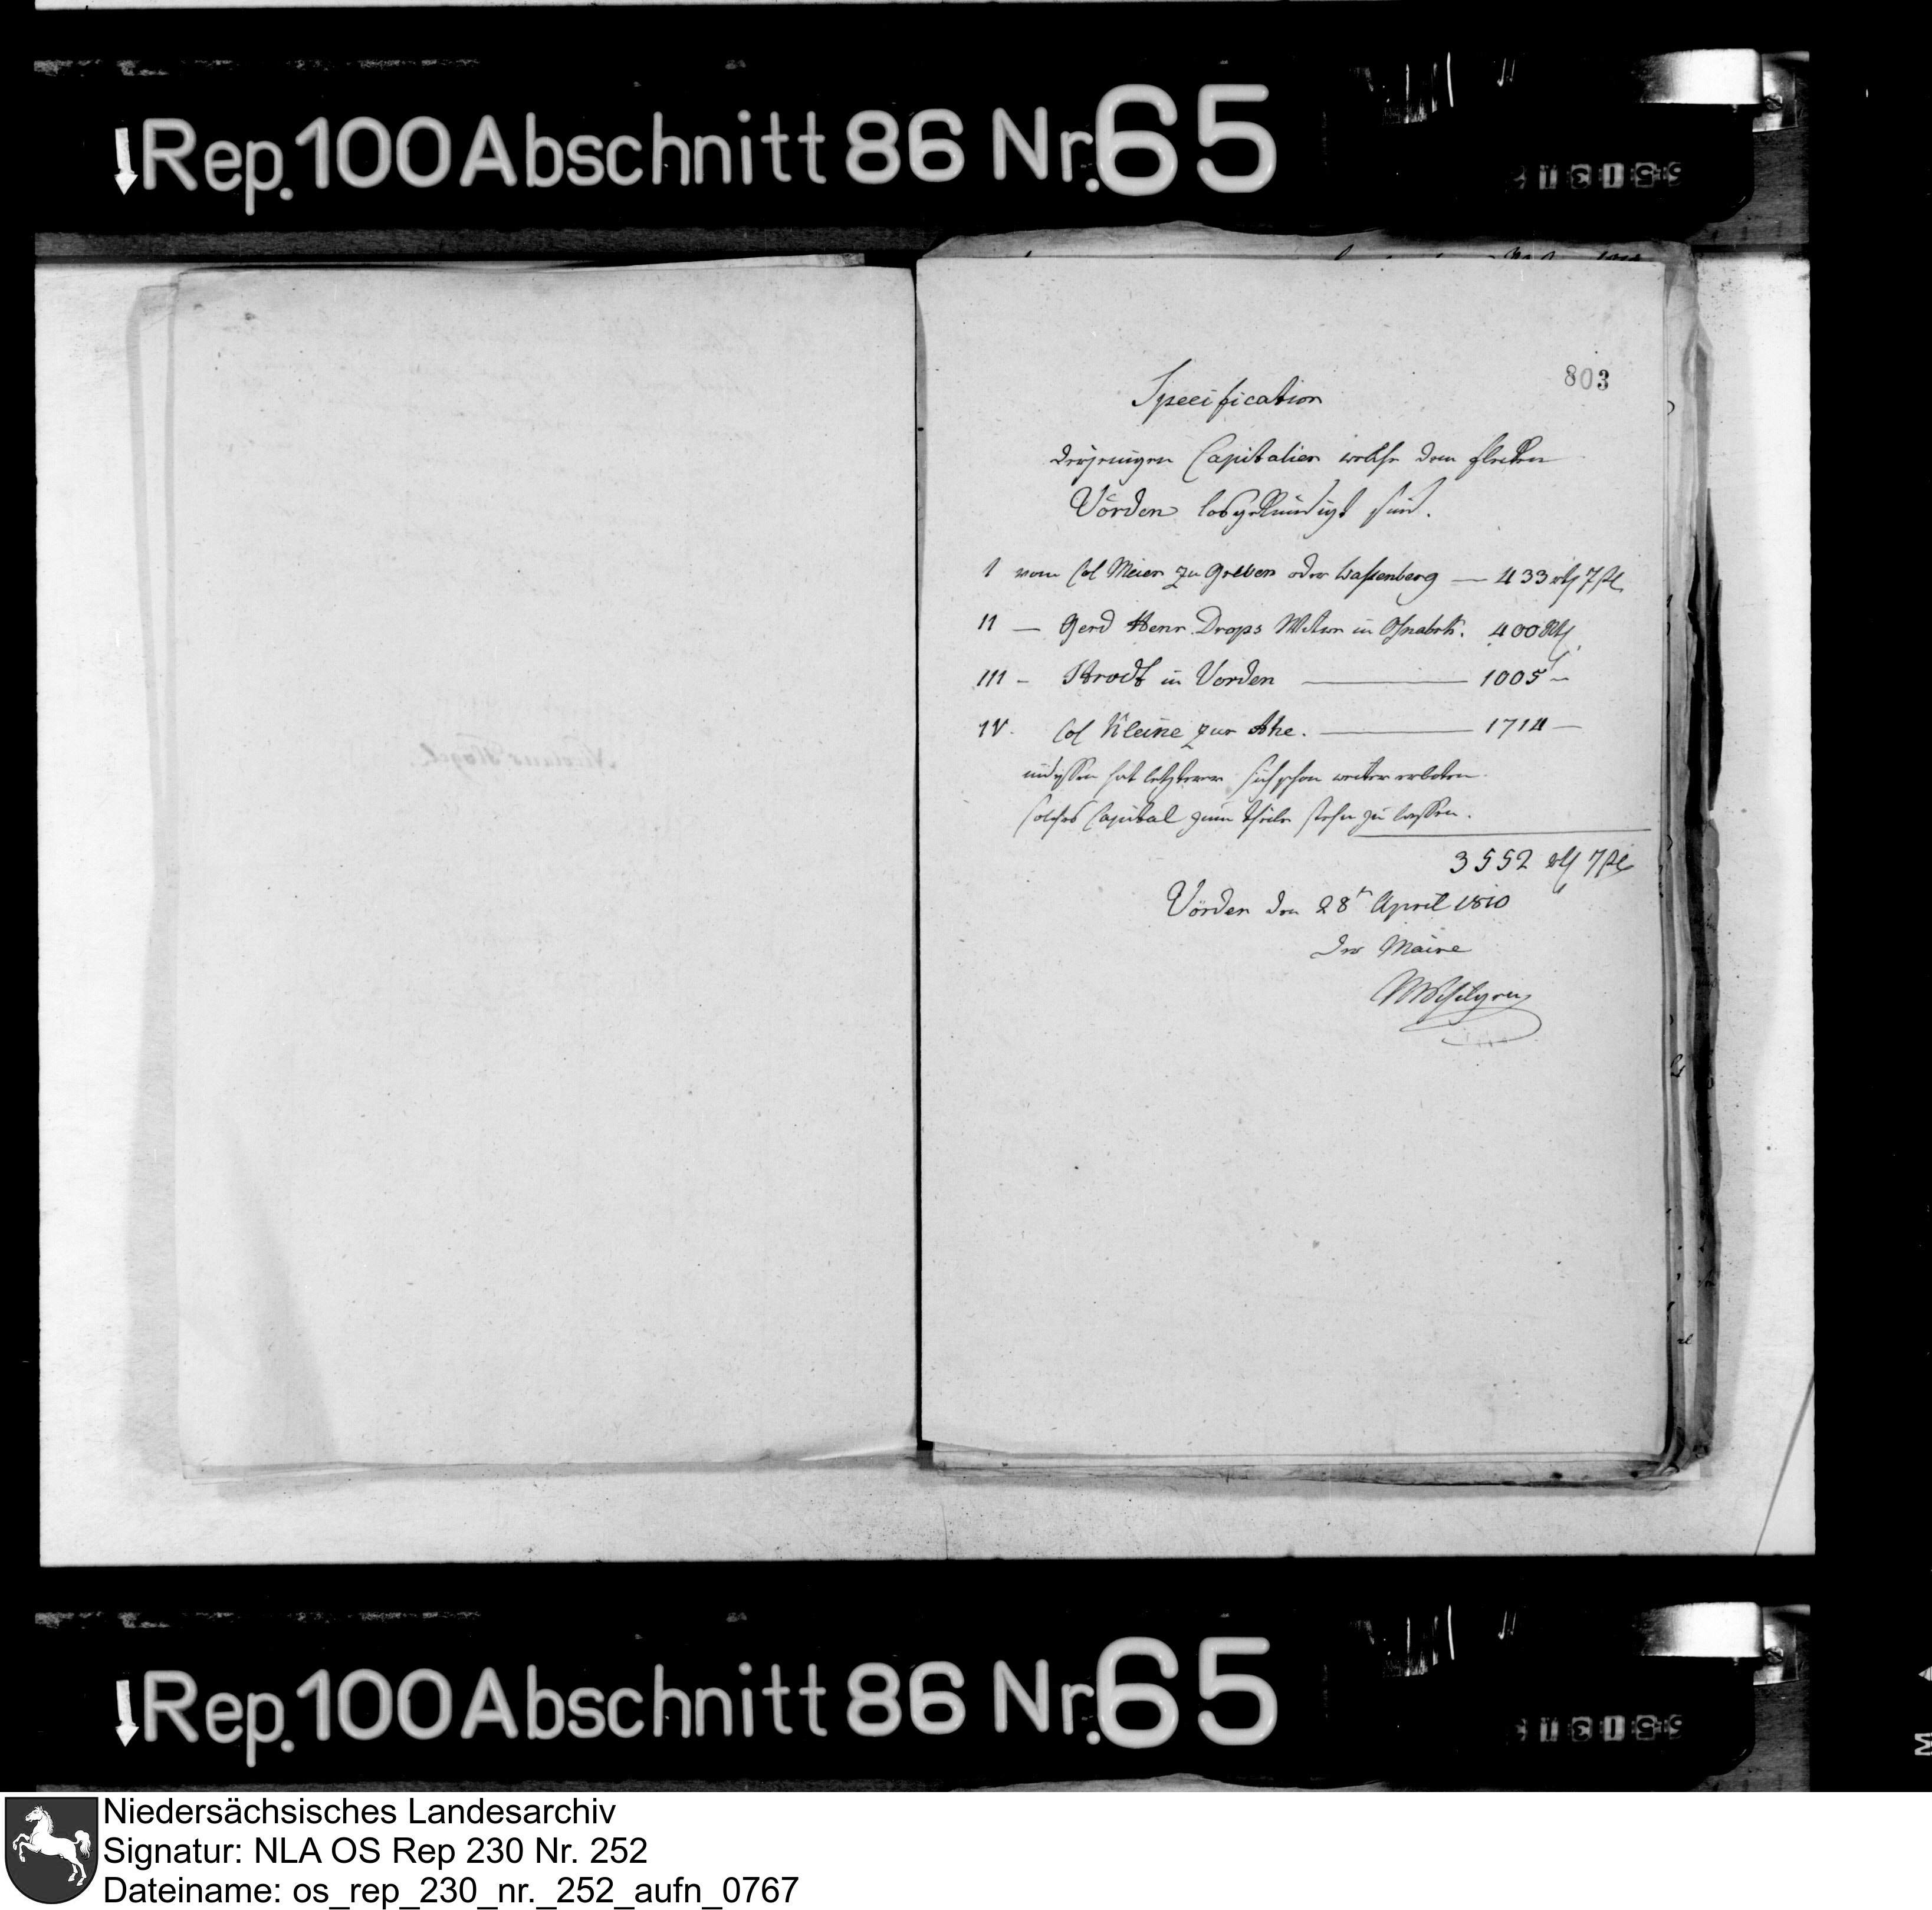 Rep. 100 Abschnitt 86 Nr. 65
803
Specification
derjenigen Capitalien welche dem Flecken
Vörden losgekündigt sind.
I vom Col Meier zu Greven oder Wassenberg — 433 rth 7 ß
II — Gerd Henr. Drops Witwe in Osnabrk. 400 Rth
III — Brodt in Vorden — 1005 —
IV. Col Kleine zur Ahe. — 1714 —
indessen hat letzterer sich schon weiter erboten
solches Capital zum theile stehn zu lassen.
3552 rth 7 ß
Vörden den 28t April 1810
Der Maire
Rep. 100 Abschnitt 86 Nr. 65
Niedersächsisches Landesarchiv
Signatur: NLA OS Rep 230 Nr. 252
Dateiname: os_rep_230_nr._252_aufn_0767